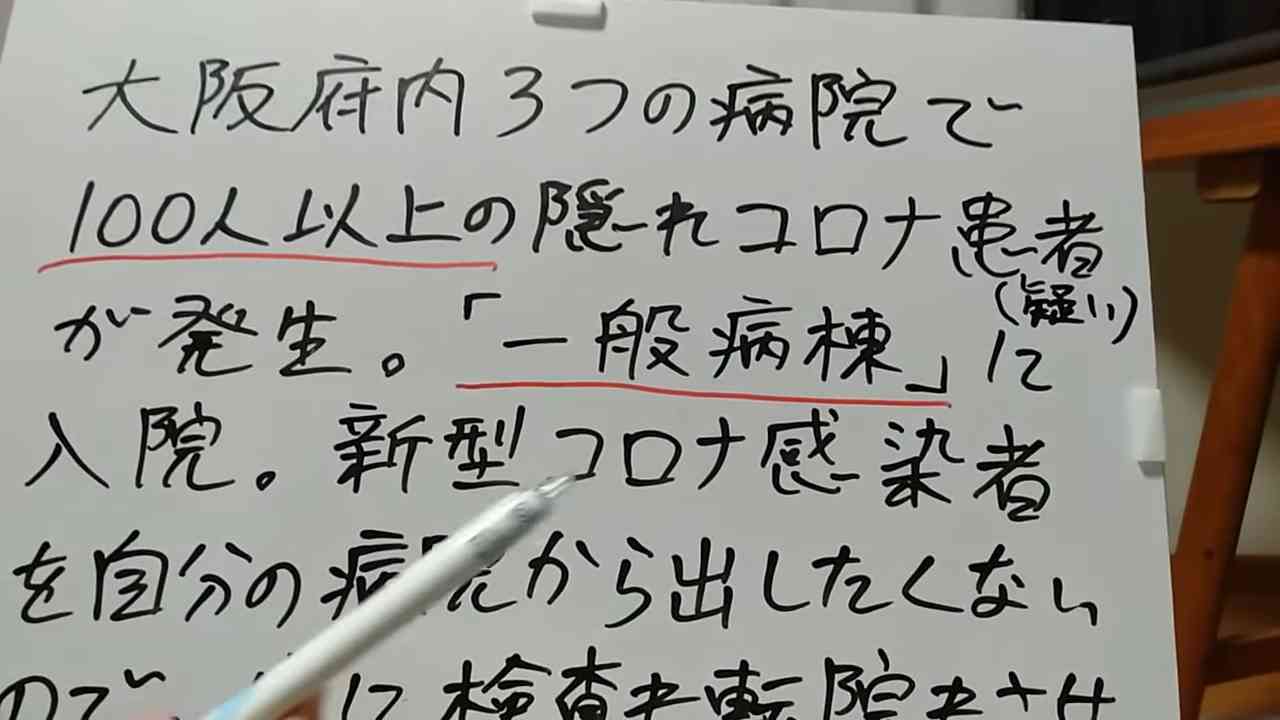 大阪府内3つの病院で
100人以上の隠れコロナ患者
(疑い)
が発生。「一般病棟」に
入院。新型コロナ感染者
を自分の病院から出したくない
ので に検査も転院もさせ